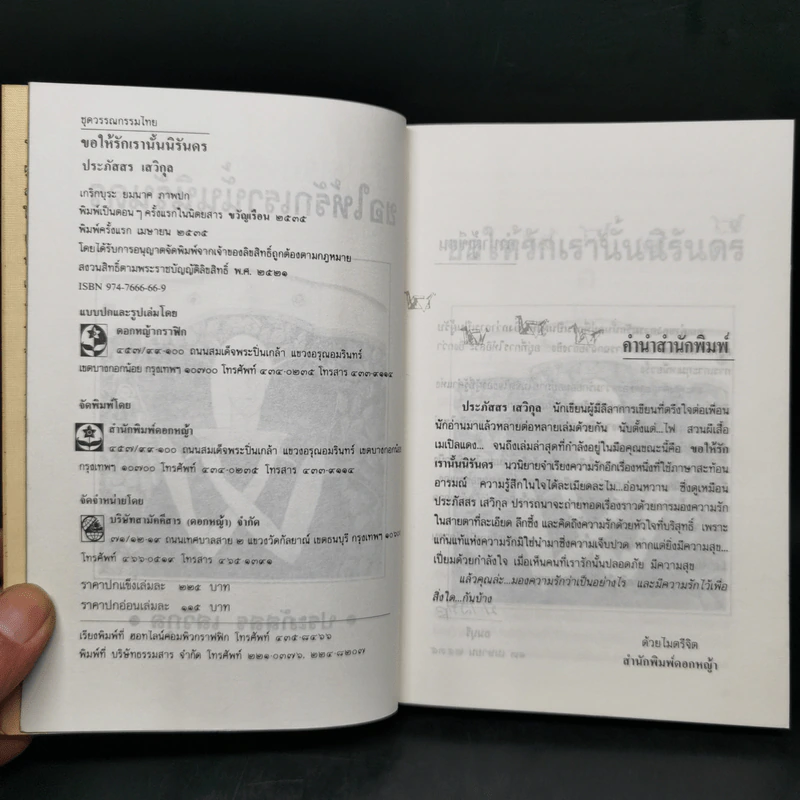 ชุดวรรณกรรมไทย
ขอให้รักเรานั้นนิรันดร
ประภัสสร เสวิกุล
เกริกบุระ ยมนาค ภาพปก
พิมพ์เป็นตอน ๆ ครั้งแรกในนิตยสาร ขวัญเรือน ๒๕๓๕
พิมพ์ครั้งแรก เมษายน ๒๕๓๕
โดยได้รับการอนุญาตจัดพิมพ์จากเจ้าของลิขสิทธิ์ถูกต้องตามกฎหมาย
สงวนสิทธิ์ตามพระราชบัญญัติลิขสิทธิ์ พ.ศ. ๒๕๒๑
ISBN 974-7666-66-9
แบบปกและรูปเล่มโดย
ดอกหญ้ากราฟิก
๔๕๗/๙๙-๑๐๐ ถนนสมเด็จพระปิ่นเกล้า แขวงอรุณอมรินทร์
เขตบางกอกน้อย กรุงเทพฯ ๑๐๗๐๐ โทรศัพท์ ๔๓๔-๐๒๓๕ โทรสาร ๔๓๓-๙๑๑๔
จัดพิมพ์โดย
สำนักพิมพ์ดอกหญ้า
๔๕๗/๙๙-๑๐๐ ถนนสมเด็จพระปิ่นเกล้า แขวงอรุณอมรินทร์ เขตบางกอกน้อย
กรุงเทพฯ ๑๐๗๐๐ โทรศัพท์ ๔๓๔-๐๒๓๕ โทรสาร ๔๓๓-๙๑๑๔
จัดจำหน่ายโดย
บริษัทสามัคคีสาร (ดอกหญ้า) จำกัด
๗๑/๑๒-๑๙ ถนนเทศบาลสาย ๒ แขวงวัดกัลยาณ์ เขตธนบุรี กรุงเทพฯ ๑๐๖๐๐
โทรศัพท์ ๔๖๖-๐๕๑๙ โทรสาร ๔๖๕-๑๓๙๑
ราคาปกแข็งเล่มละ ๒๒๕ บาท
ราคาปกอ่อนเล่มละ ๑๑๕ บาท
เรียงพิมพ์ที่ ฮอทไลน์คอมพิวกราฟฟิก โทรศัพท์ ๔๓๕-๘๔๖๖
พิมพ์ที่ บริษัทธรรมสาร จำกัด โทรศัพท์ ๒๒๑-๐๓๗๖, ๒๒๔-๘๒๐๗
คำนำสำนักพิมพ์
ประภัสสร เสวิกุล นักเขียนผู้มีลีลาการเขียนที่ตรึงใจต่อเพื่อน
นักอ่านมาแล้วหลายต่อหลายเล่มด้วยกัน นับตั้งแต่...ไฟ สวนผีเสื้อ
เมเปิลแดง... จนถึงเล่มล่าสุดที่กำลังอยู่ในมือคุณขณะนี้คือ ขอให้รัก
เรานั้นนิรันดร นวนิยายจำเรียงความรักอีกเรื่องหนึ่งที่ใช้ภาษาสะท้อน
อารมณ์ ความรู้สึกในใจได้ละเมียดละไม...อ่อนหวาน ซึ่งดูเหมือน
ประภัสสร เสวิกุล ปรารถนาจะถ่ายทอดเรื่องราวด้วยการมองความรัก
ในสายตาที่ละเอียด ลึกซึ้ง และคิดถึงความรักด้วยหัวใจที่บริสุทธิ์ เพราะ
แก่นแท้แห่งความรักมิใช่นำมาซึ่งความเจ็บปวด หากแต่ยิ่งมีความสุข...
เปี่ยมด้วยกำลังใจ เมื่อเห็นคนที่เรารักนั้นปลอดภัย มีความสุข
แล้วคุณล่ะ...มองความรักว่าเป็นอย่างไร และมีความรักไว้เพื่อ
สิ่งใด...กันบ้าง
ด้วยไมตรีจิต
สำนักพิมพ์ดอกหญ้า